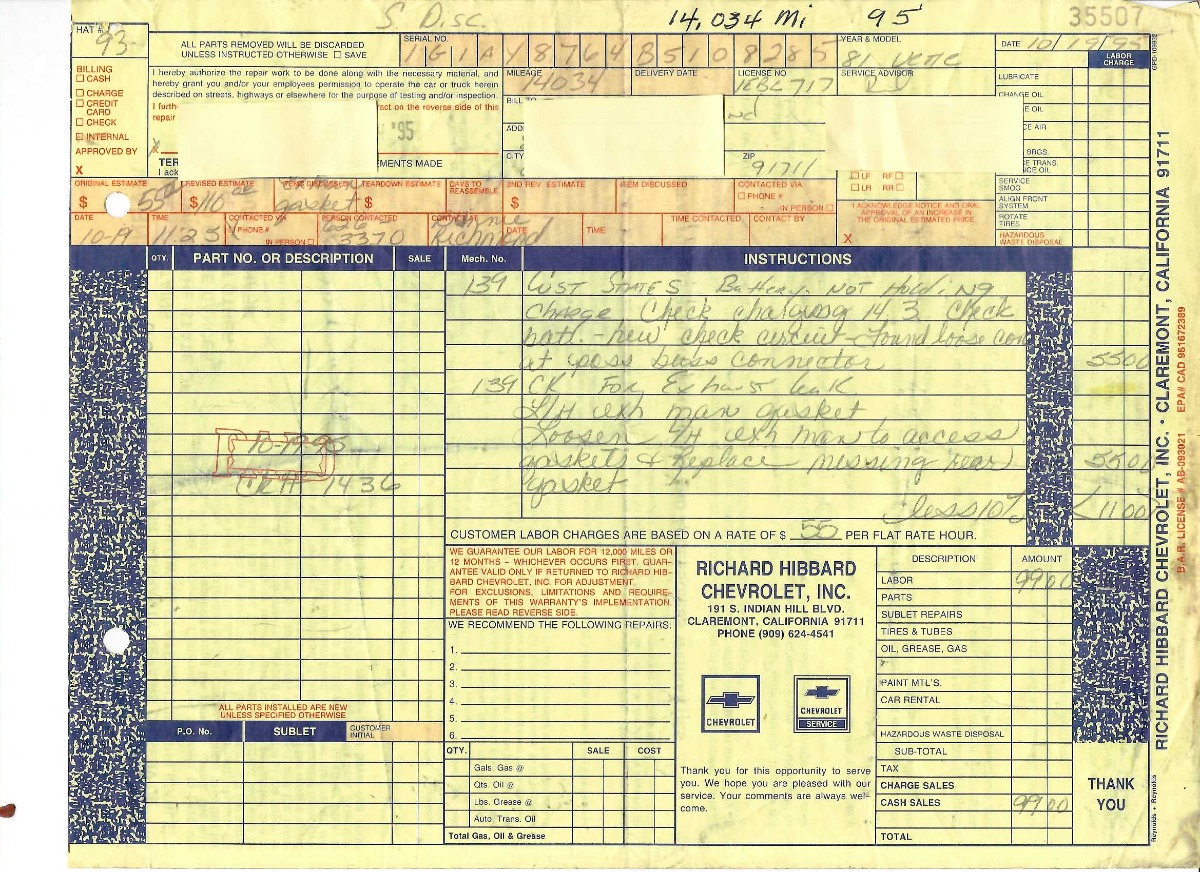 S Disc. 14,034 Mi 95
35507
HAT #
93
ALL PARTS REMOVED WILL BE DISCARDED
UNLESS INSTRUCTED OTHERWISE ☐ SAVE
SERIAL NO.
1G1AY8764B5108285
YEAR & MODEL
81 VETTE
DATE 10/19/95
LABOR
CHARGE
BILLING
☐ CASH
☐ CHARGE
☐ CREDIT
CARD
☐ CHECK
☐ INTERNAL
APPROVED BY
X
I hereby authorize the repair work to be done along with the necessary material, and
hereby grant you and/or your employees permission to operate the car or truck herein
described on streets, highways or elsewhere for the purpose of testing and/or inspection.
I furth
ract on the reverse side of this
repair
X
'95
TER
EMENTS MADE
I ack
MILEAGE
14034
DELIVERY DATE
LICENSE NO
1EBL717
SERVICE ADVISOR
BILL TO
ADD
CITY
ZIP
91711
☐ LF RF ☐
☐ LR RR ☐
LUBRICATE
CHANGE OIL
E OIL
CE AIR
BRGS.
CE TRANS.
CE OIL
SERVICE
SMOG
ALIGN FRONT
SYSTEM
ROTATE
TIRES
HAZARDOUS
WASTE DISPOSAL
ORIGINAL ESTIMATE
$ 55
REVISED ESTIMATE
$ 110
ITEMS DISCUSSED
gasket
TEARDOWN ESTIMATE
$
DAYS TO
REASSEMBLE
2ND REV. ESTIMATE
$
ITEM DISCUSSED
CONTACTED VIA
☐ PHONE #
IN PERSON ☐
I ACKNOWLEDGE NOTICE AND ORAL
APPROVAL OF AN INCREASE IN
THE ORIGINAL ESTIMATED PRICE.
X
DATE
10-19
TIME
11:25
CONTACTED VIA
☐ PHONE #
IN PERSON ☐
PERSON CONTACTED
626
3370
CONTACT BY
Richmond
DATE
TIME
TIME CONTACTED
CONTACT BY
QTY. PART NO. OR DESCRIPTION SALE Mech. No. INSTRUCTIONS
139 Cust States Battery not Holding
charge. Check charging 14.3 Check
batt. - new check circuit - Found loose con
at poss buss connector 5500
139 CK For Exhaust leak
L/H exh man gasket
Loosen L/H exh man to access
gaskets & Replace missing rear 5500
gasket
less 10% <1100
PAID
10-19-95
CK # 1436
CUSTOMER LABOR CHARGES ARE BASED ON A RATE OF $ 55 PER FLAT RATE HOUR.
WE GUARANTEE OUR LABOR FOR 12,000 MILES OR
12 MONTHS – WHICHEVER OCCURS FIRST. GUAR-
ANTEE VALID ONLY IF RETURNED TO RICHARD HIB-
BARD CHEVROLET, INC. FOR ADJUSTMENT.
FOR EXCLUSIONS, LIMITATIONS AND REQUIRE-
MENTS OF THIS WARRANTY'S IMPLEMENTATION.
PLEASE READ REVERSE SIDE.
WE RECOMMEND THE FOLLOWING REPAIRS:
1.
2.
3.
4.
5.
6.
RICHARD HIBBARD
CHEVROLET, INC.
191 S. INDIAN HILL BLVD.
CLAREMONT, CALIFORNIA 91711
PHONE (909) 624-4541
CHEVROLET
CHEVROLET
SERVICE
Thank you for this opportunity to serve
you. We hope you are pleased with our
service. Your comments are always wel-
come.
DESCRIPTION AMOUNT
LABOR 9900
PARTS
SUBLET REPAIRS
TIRES & TUBES
OIL, GREASE, GAS
PAINT MTL'S.
CAR RENTAL
HAZARDOUS WASTE DISPOSAL
SUB-TOTAL
TAX
CHARGE SALES
CASH SALES 9900
TOTAL
ALL PARTS INSTALLED ARE NEW
UNLESS SPECIFIED OTHERWISE
P.O. No. SUBLET CUSTOMER
INITIAL
QTY. SALE COST
Gals. Gas @
Qts. Oil @
Lbs. Grease @
Auto. Trans. Oil
Total Gas, Oil & Grease
THANK
YOU
RICHARD HIBBARD CHEVROLET, INC. • CLAREMONT, CALIFORNIA 91711
B.A.R. LICENSE # AB-093021 EPA# CAD 981672389
Reynolds + Reynolds